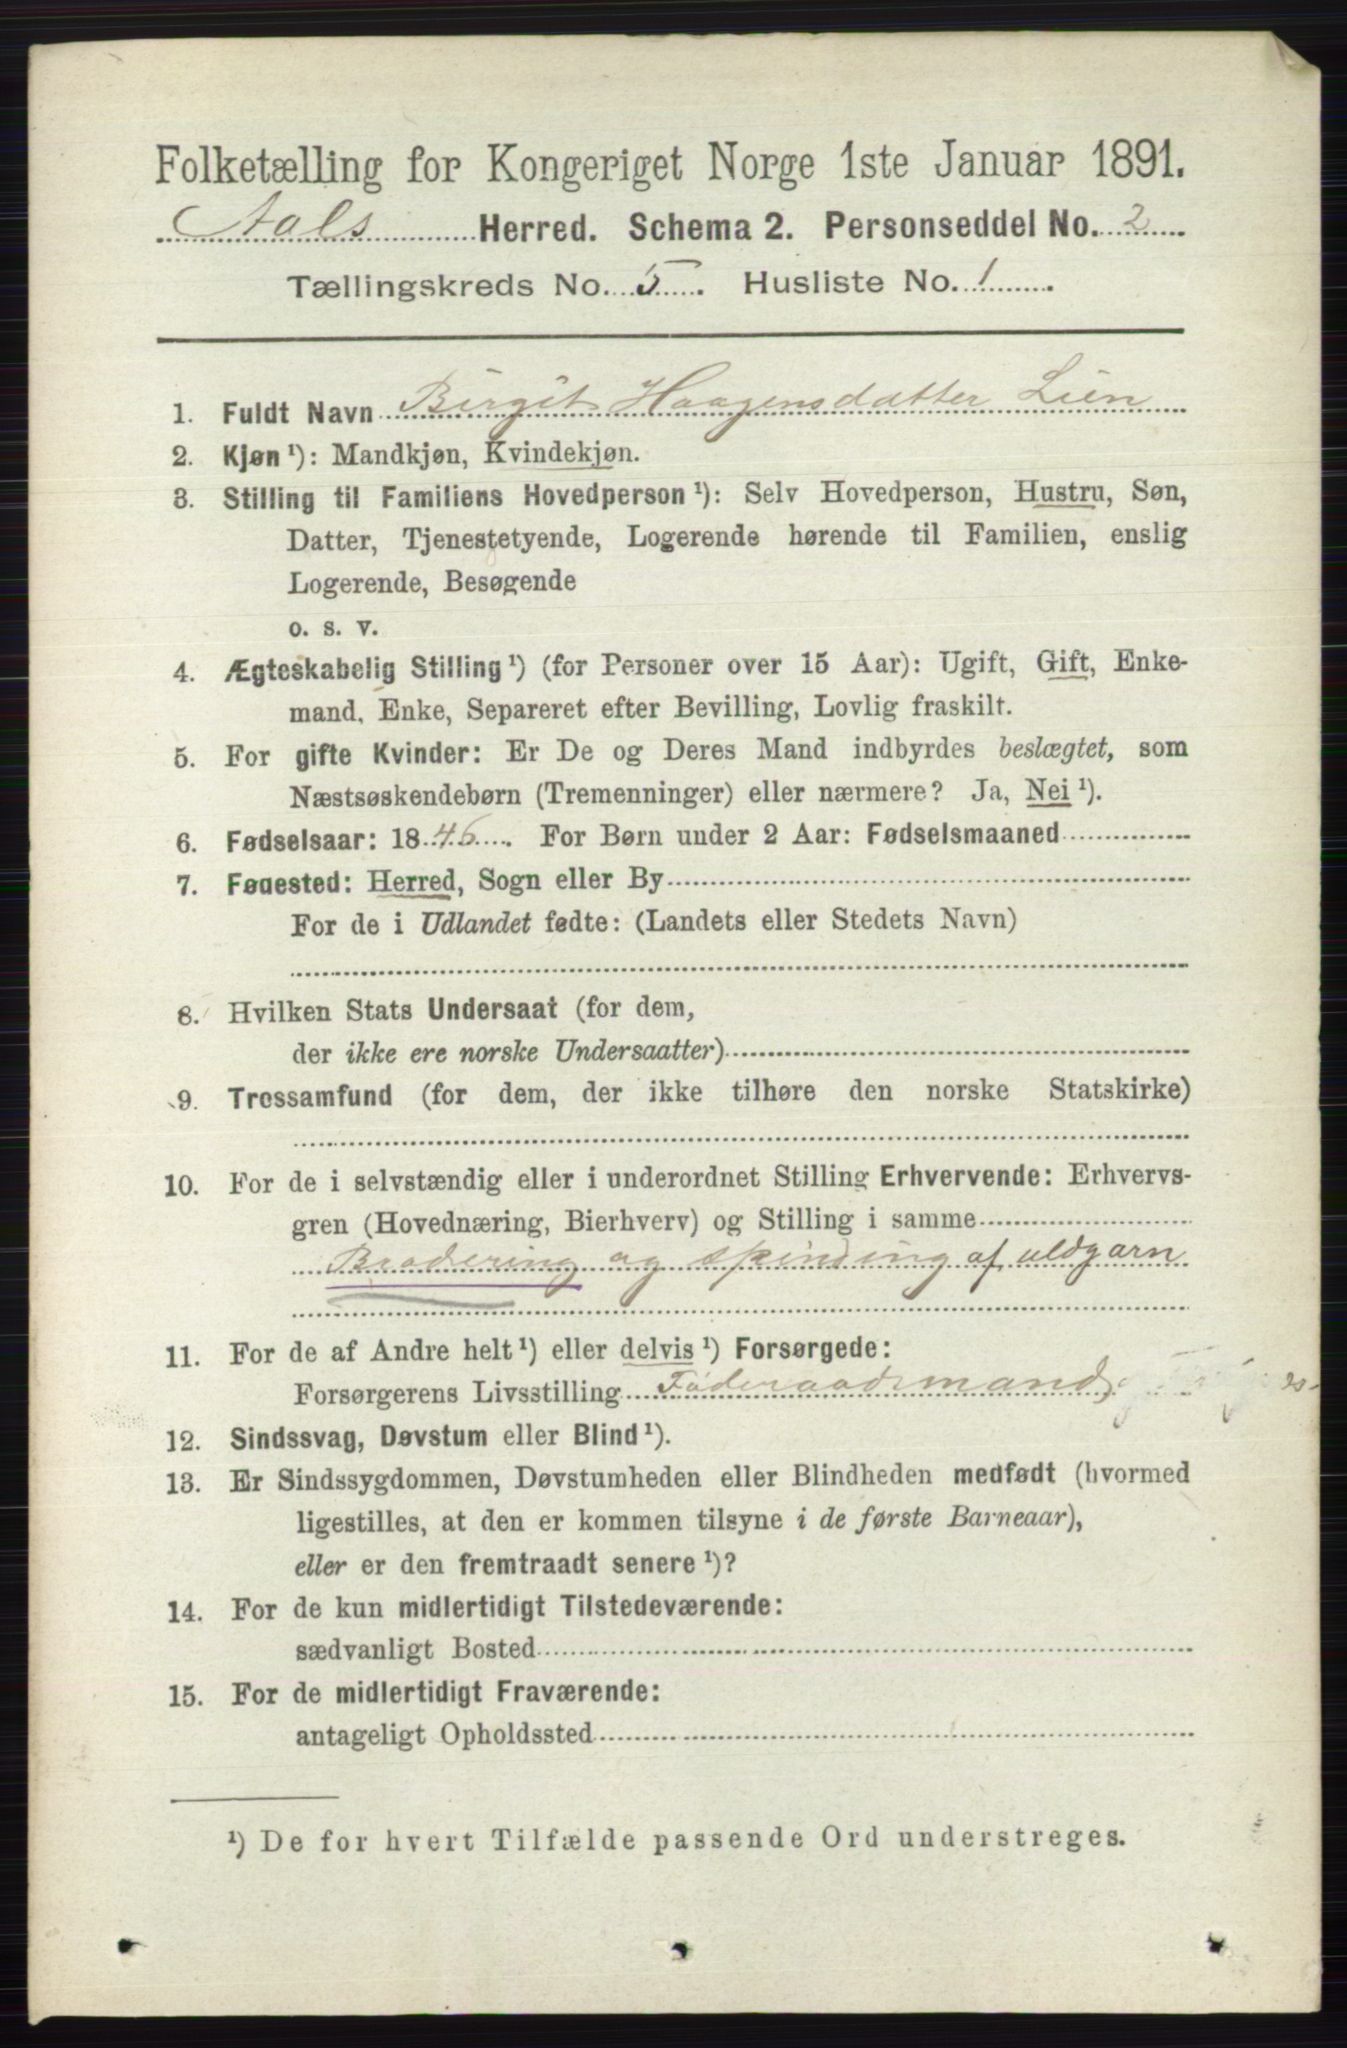 Folketælling for Kongeriget Norge 1ste Januar 1891.
Aals Herred. Schema 2. Personseddel No. 2
Tællingskreds No. 5. Husliste No. 1.
1. Fuldt Navn Birgit Haagensdatter Lien
2. Kjøn ¹): Mandkjøn, Kvindekjøn.
3. Stilling til Familiens Hovedperson ¹): Selv Hovedperson, Hustru, Søn,
Datter, Tjenestetyende, Logerende hørende til Familien, enslig
Logerende, Besøgende
o. s. v.
4. Ægteskabelig Stilling ¹) (for Personer over 15 Aar): Ugift, Gift, Enke-
mand, Enke, Separeret efter Bevilling, Lovlig fraskilt.
5. For gifte Kvinder: Er De og Deres Mand indbyrdes beslægtet, som
Næstsøskendebørn (Tremenninger) eller nærmere? Ja, Nei ¹).
6. Fødselsaar: 1846. For Børn under 2 Aar: Fødselsmaaned
7. Fødested: Herred, Sogn eller By
For de i Udlandet fødte: (Landets eller Stedets Navn)
8. Hvilken Stats Undersaat (for dem,
der ikke ere norske Undersaatter)
9. Trossamfund (for dem, der ikke tilhøre den norske Statskirke)
10. For de i selvstændig eller i underordnet Stilling Erhvervende: Erhvervs-
gren (Hovednæring, Bierhverv) og Stilling i samme
Brodering og spinding af uldgarn
11. For de af Andre helt ¹) eller delvis ¹) Forsørgede:
Forsørgerens Livsstilling Føderaadsmand
12. Sindssvag, Døvstum eller Blind ¹).
13. Er Sindssygdommen, Døvstumheden eller Blindheden medfødt (hvormed
ligestilles, at den er kommen tilsyne i de første Barneaar),
eller er den fremtraadt senere ¹)?
14. For de kun midlertidigt Tilstedeværende:
sædvanligt Bosted
15. For de midlertidigt Fraværende:
antageligt Opholdssted
¹) De for hvert Tilfælde passende Ord understreges.